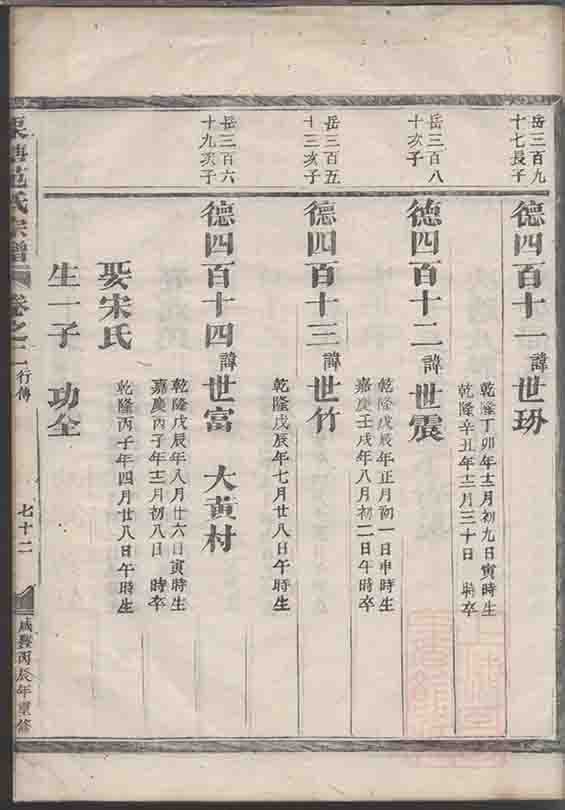 岳三百九
十七長子
德四百十一諱世玢
乾隆丁卯年十二月初九日寅時生
乾隆辛丑年十二月三十日 時卒
岳三百八
十次子
德四百十二諱世震
乾隆戊辰年正月初一日申時生
嘉慶壬戌年八月初二日午時卒
岳三百五
十三次子
德四百十三諱世竹
乾隆戊辰年七月廿八日午時生
岳三百六
十九次子
德四百十四諱世富 大黃村
乾隆戊辰年八月廿六日寅時生
嘉慶丙子年十二月初八日 時卒
娶宋氏
乾隆丙子年四月廿八日午時生
生一子 功全
范氏宗譜 卷之二 行傳 七十二 咸豐丙辰年重修